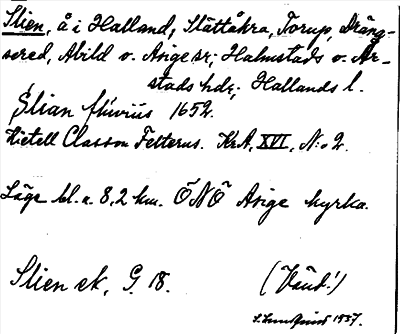 Slien, å i Halland, Slättåkra, Torup, Dräng-
sered, Abild o. Asige sr; Halmstads o. År-
stads hdr; Hallands l.
Slian flúviús 1652.
Kietell Classon Felterus. KrA, XVI, N:o 2.
Läge bl.a. 8,2 km. ÖNÖ Asige kyrka.
Slien ek, G. 18. (Vänd!)
S. Lundquist 1937.